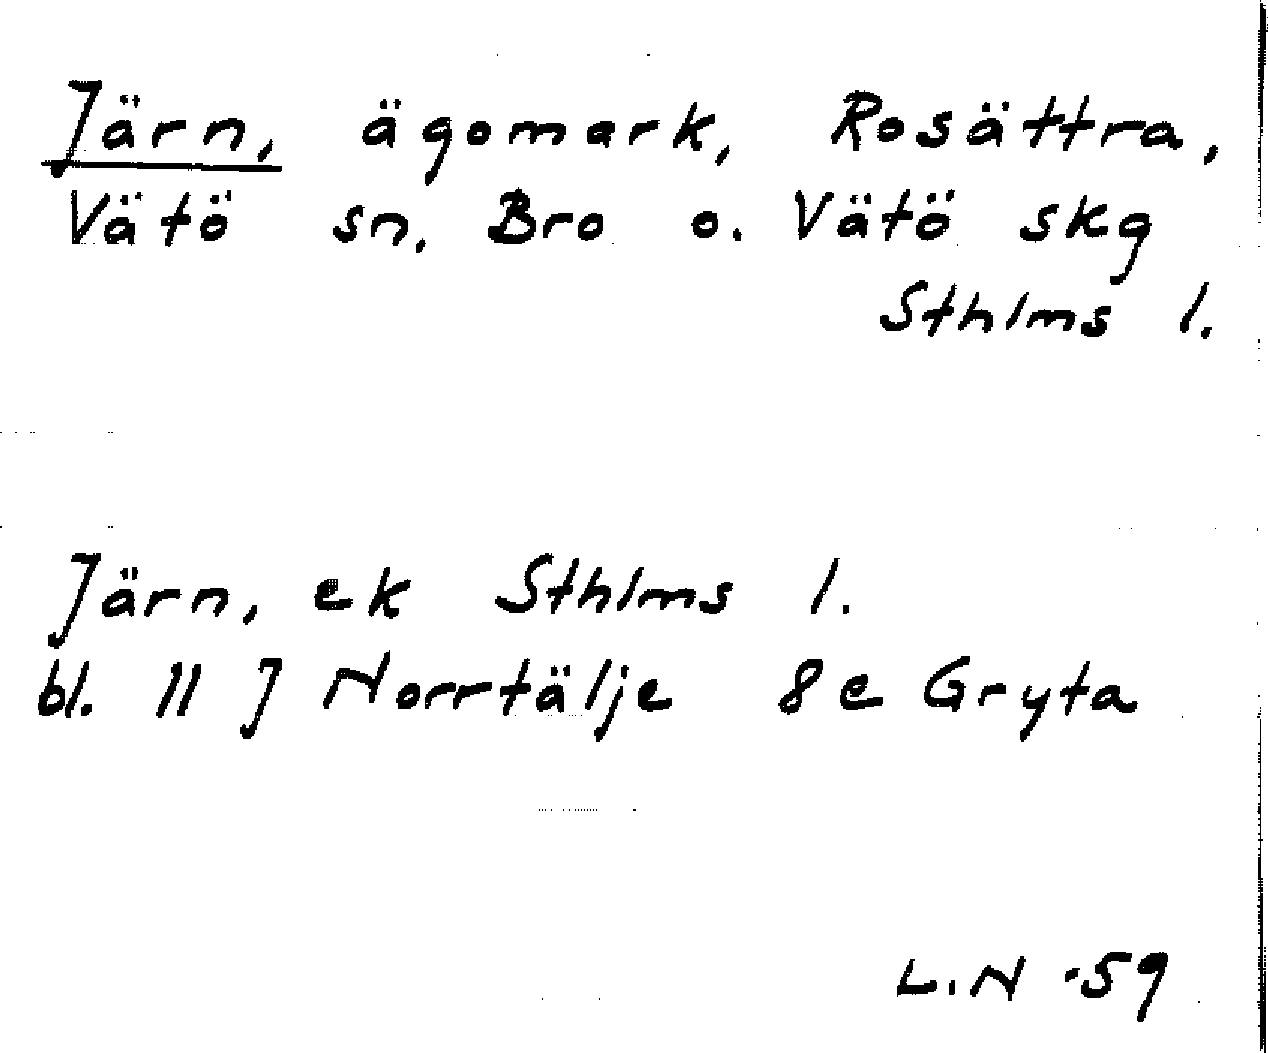 Järn, ägomark, Rosättra,
Vätö sn, Bro o. Vätö skg
Sthlms l.
Järn, ek Sthlms l.
bl. 11 J Norrtälje 8e Gryta
L.N -59